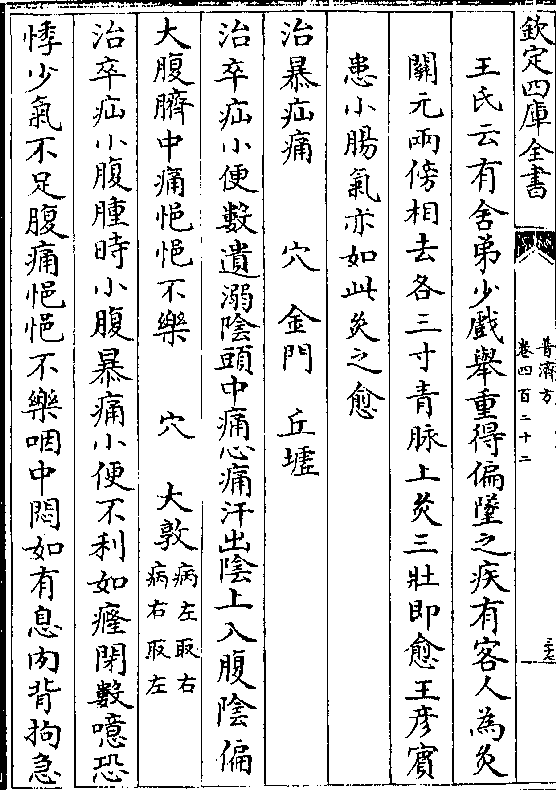 欽定四庫全書
普濟方
卷四百二十二
王氏云有舍弟少戲舉重得偏墜之疾有客人為灸
關元兩傍相去各三寸青脉上灸三壯即愈王彦賓
患小腸氣亦如此灸之愈
治暴疝痛　穴　金門　丘墟
治卒疝小便數遺溺陰頭中痛心痛汗出陰上入腹陰偏
大腹臍中痛悒悒不樂　穴　大敦病左取右
病右取左
治卒疝小腹腫時小腹暴痛小便不利如癃閉數噫恐
悸少氣不足腹痛悒悒不樂咽中悶如有息肉背拘急